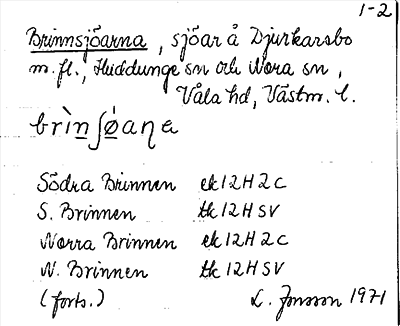 1-2
Brinnsjöarna, sjöar å Djurkarsbo
m.fl., Huddunge sn och Nora sn,
Våla hd, Västm. l.
brìn̲ʃǿ̲aꞃa
Södra Brinnen ek 12H 2c
S. Brinnen tk 12H SV
Norra Brinnen ek 12H 2c
N. Brinnen tk 12H SV
(forts.) L. Jonsson 1971